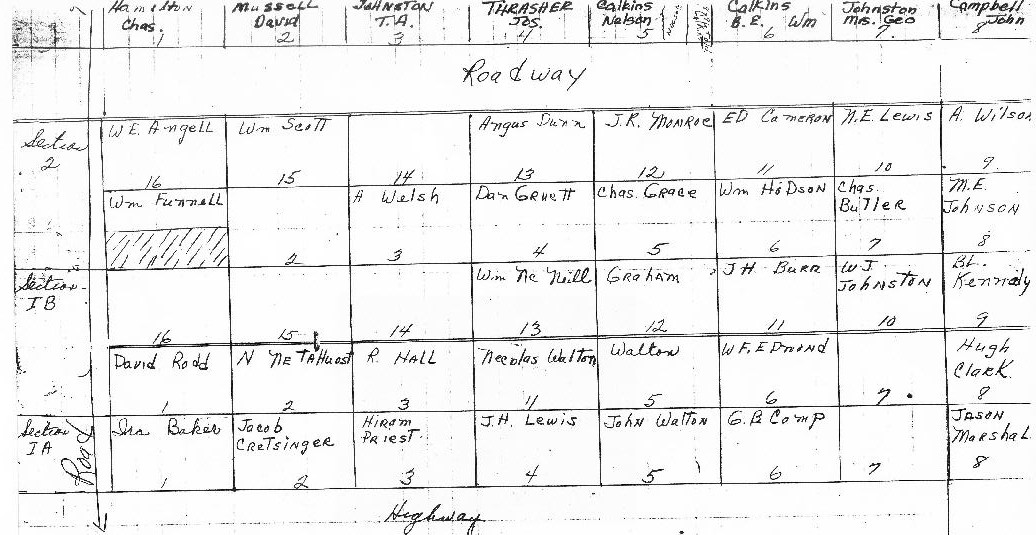 Hamilton Mussell Johnston Thrasher Calkins Calkins Johnston Campbell
Chas. David T.A. Jos. Nelson B.E. Wm Mrs. Geo John
1 2 3 4 5 6 7 8
Roadway
Section W.E. Angell Wm Scott Angus Dunn J.R. Monroe ED Cameron N.E. Lewis A. Wilson
2
16 15 14 13 12 11 10 9
Wm Funnell A Welsh Dan Gruett Chas. Grace Wm Hodson Chas. M.E.
Butler Johnson
2 3 4 5 6 7 8
Section Wm Mc Neill Graham J.H. Burr W.J. B.L.
IB Johnston Kennedy
16 15 14 13 12 11 10 9
David Rodd N R. Hall Necolas Walton Walton W.F. Edmond Hugh
Clark
1 2 3 4 5 6 7 8
Section Ira Baker Jacob Hiram J.H. Lewis John Walton G.B Camp Jason
IA Cretsinger Priest Marshal
Road
1 2 3 4 5 6 7 8
Highway